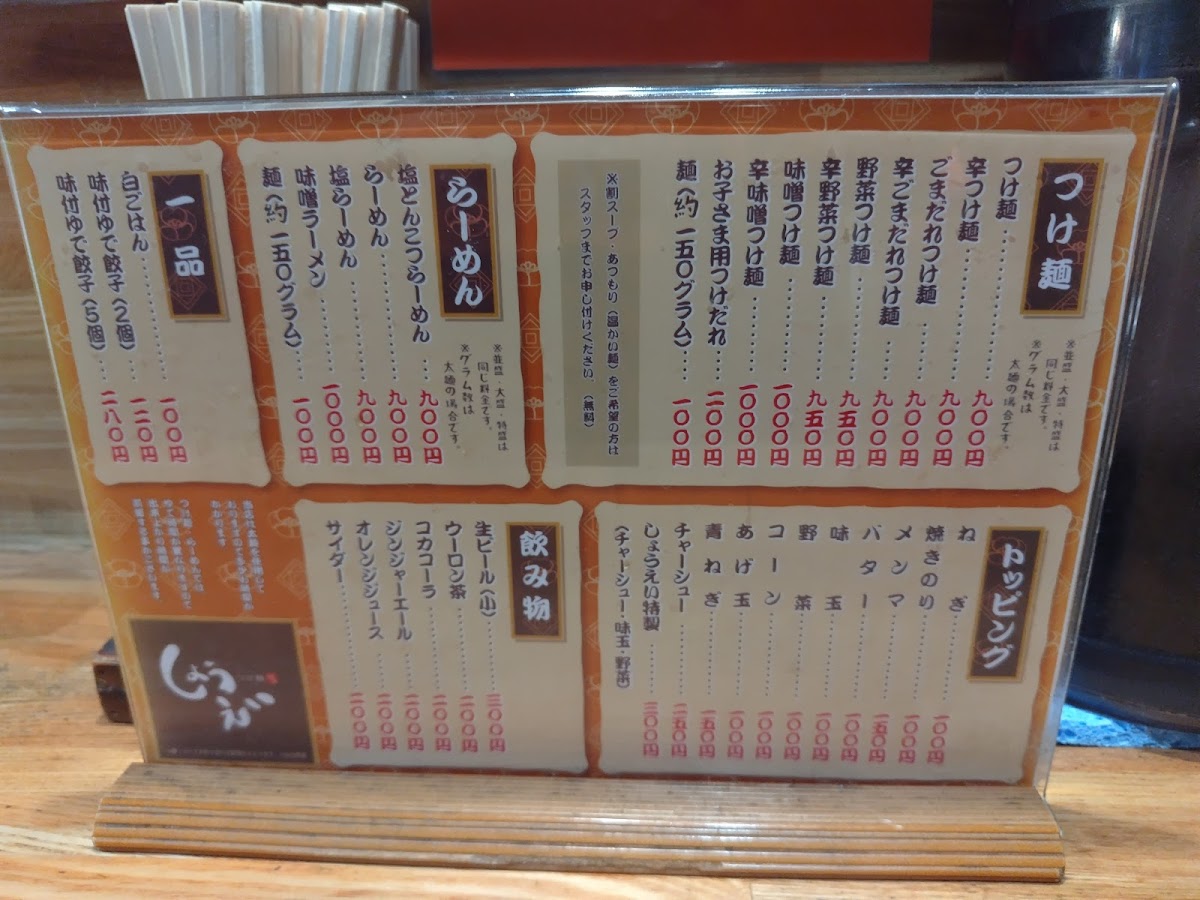 つけ麺
※並盛・大盛・特盛は
同じ料金です。
※グラム数は
太麺の場合です。
つけ麺……九〇〇円
辛つけ麺……九〇〇円
ごまだれつけ麺……九〇〇円
辛ごまだれつけ麺……九〇〇円
野菜つけ麺……九五〇円
辛野菜つけ麺……九五〇円
味噌つけ麺……一〇〇〇円
辛味噌つけ麺……一〇〇〇円
お子さま用つけだれ……二〇〇円
麺(約一五〇グラム)……一〇〇円
※割スープ・あつもり(温かい麺)をご希望の方は
スタッフまでお申し付けください。(無料)
らーめん
※並盛・大盛・特盛は
同じ料金です。
※グラム数は
太麺の場合です。
塩とんこつらーめん……九〇〇円
らーめん……九〇〇円
塩らーめん……九〇〇円
味噌ラーメン……一〇〇〇円
麺(約一五〇グラム)……一〇〇円
一品
白ごはん……一〇〇円
味付ゆで餃子(2個)……一二〇円
味付ゆで餃子(5個)……二八〇円
トッピング
ねぎ……一〇〇円
焼きのり……一〇〇円
メンマ……一五〇円
バター……一〇〇円
味玉……一〇〇円
野菜……一〇〇円
コーン……一〇〇円
あげ玉……一〇〇円
青ねぎ……一五〇円
チャーシュー……二五〇円
しょうえい特製……三〇〇円
(チャーシュー・味玉・野菜)
飲み物
生ビール(小)……三〇〇円
ウーロン茶……一〇〇円
コカコーラ……一〇〇円
ジンジャーエール……一〇〇円
オレンジジュース……一〇〇円
サイダー……一〇〇円
しょうえい